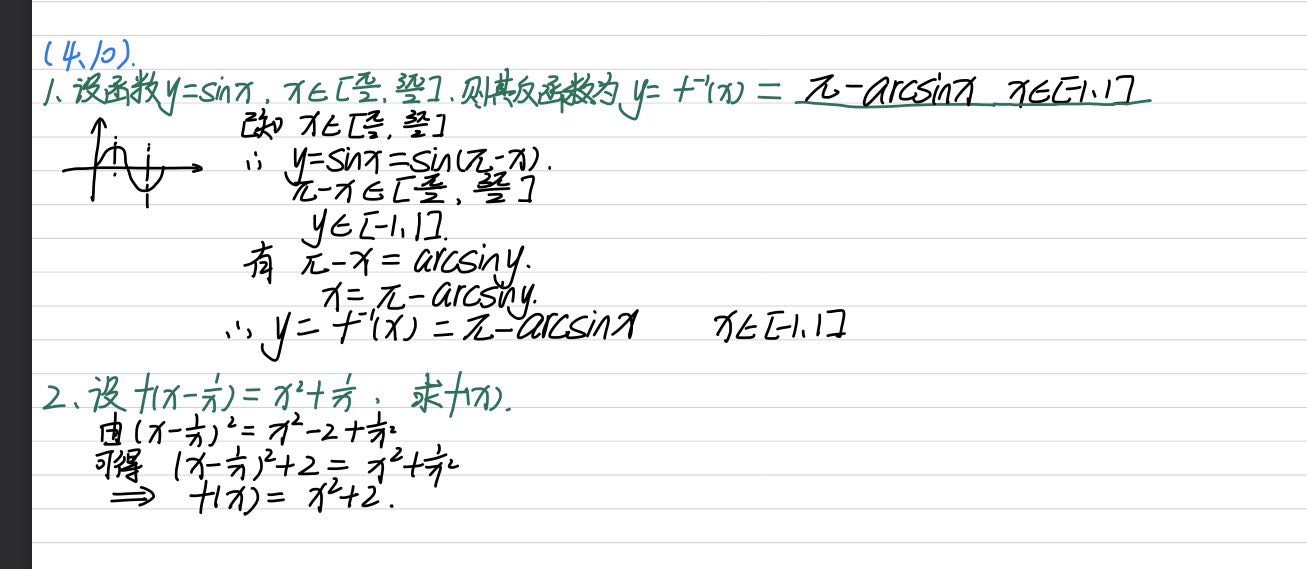 (4、10).
1、设函数y=sinx, x∈[π/2, 3π/2], 则其反函数为 y=f⁻¹(x) = π-arcsinx x∈[-1,1]
已知 x∈[π/2, 3π/2]
∴ y=sinx=sin(π-x).
π-x∈[π/2, 3π/2]
y∈[-1,1].
有 π-x = arcsiny.
x = π-arcsiny.
∴ y = f⁻¹(x) = π-arcsinx x∈[-1,1]
2、设 f(x-1/x) = x²+1/x, 求f(x).
由(x-1/x)² = x²-2+1/x²
可得 (x-1/x)²+2 = x²+1/x²
⇒ f(x) = x²+2.